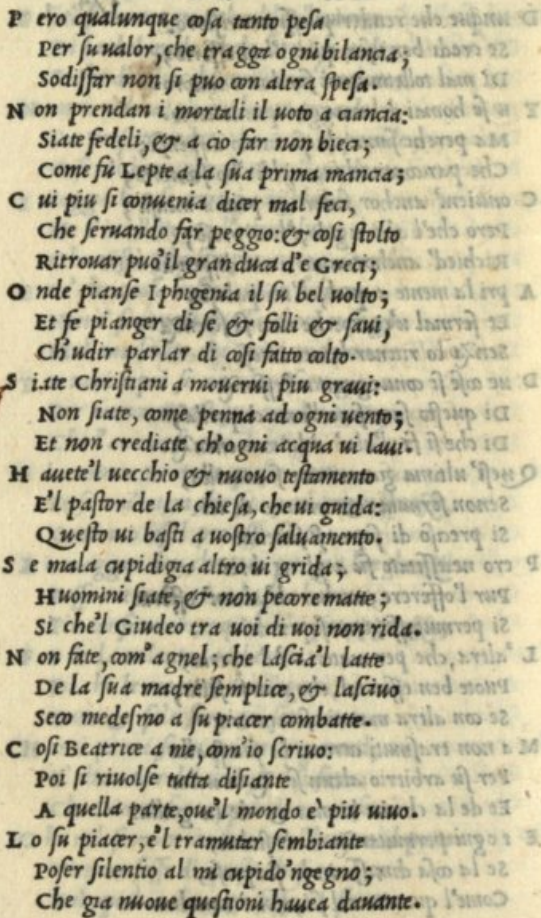 P ero qualunque cosa tanto pesa
Per su ualor, che tragga ogni bilancia;
Sodisfar non si puo con altra spesa.
N on prendan i mortali il uoto a ciancia:
Siate fedeli, & a cio far non bieci;
Come fu Lepte a la sua prima mancia;
C ui piu si conuenia dicer mal feci,
Che seruando far peggio: & cosi stolto
Ritrouar puo'il gran duca d'e Greci;
O nde pianse Iphigenia il su bel uolto;
Et fe pianger di se & folli & saui,
Ch'udir parlar di cosi fatto colto.
S iate Christiani a mouerui piu graui:
Non siate, come penna ad ogni uento;
Et non crediate ch'ogni acqua ui laui.
H auete'l uecchio & nuouo testamento
E'l pastor de la chiesa, che ui guida:
Questo ui basti a uostro saluamento.
S e mala cupidigia altro ui grida;
Huomini siate, & non pecore matte;
Si che'l Giudeo tra uoi di uoi non rida.
N on fate, com'agnel; che lascia'l latte
De la sua madre semplice, & lasciuo
Seco medesmo a su piacer combatte.
C osi Beatrice a me, com'io scriuo:
Poi si riuolse tutta disiante
A quella parte, oue'l mondo e` piu uiuo.
L o su piacer, e'l tramutar sembiante
Poser silentio al mi cupido'ngegno;
Che gia nuoue questioni hauea dauante.